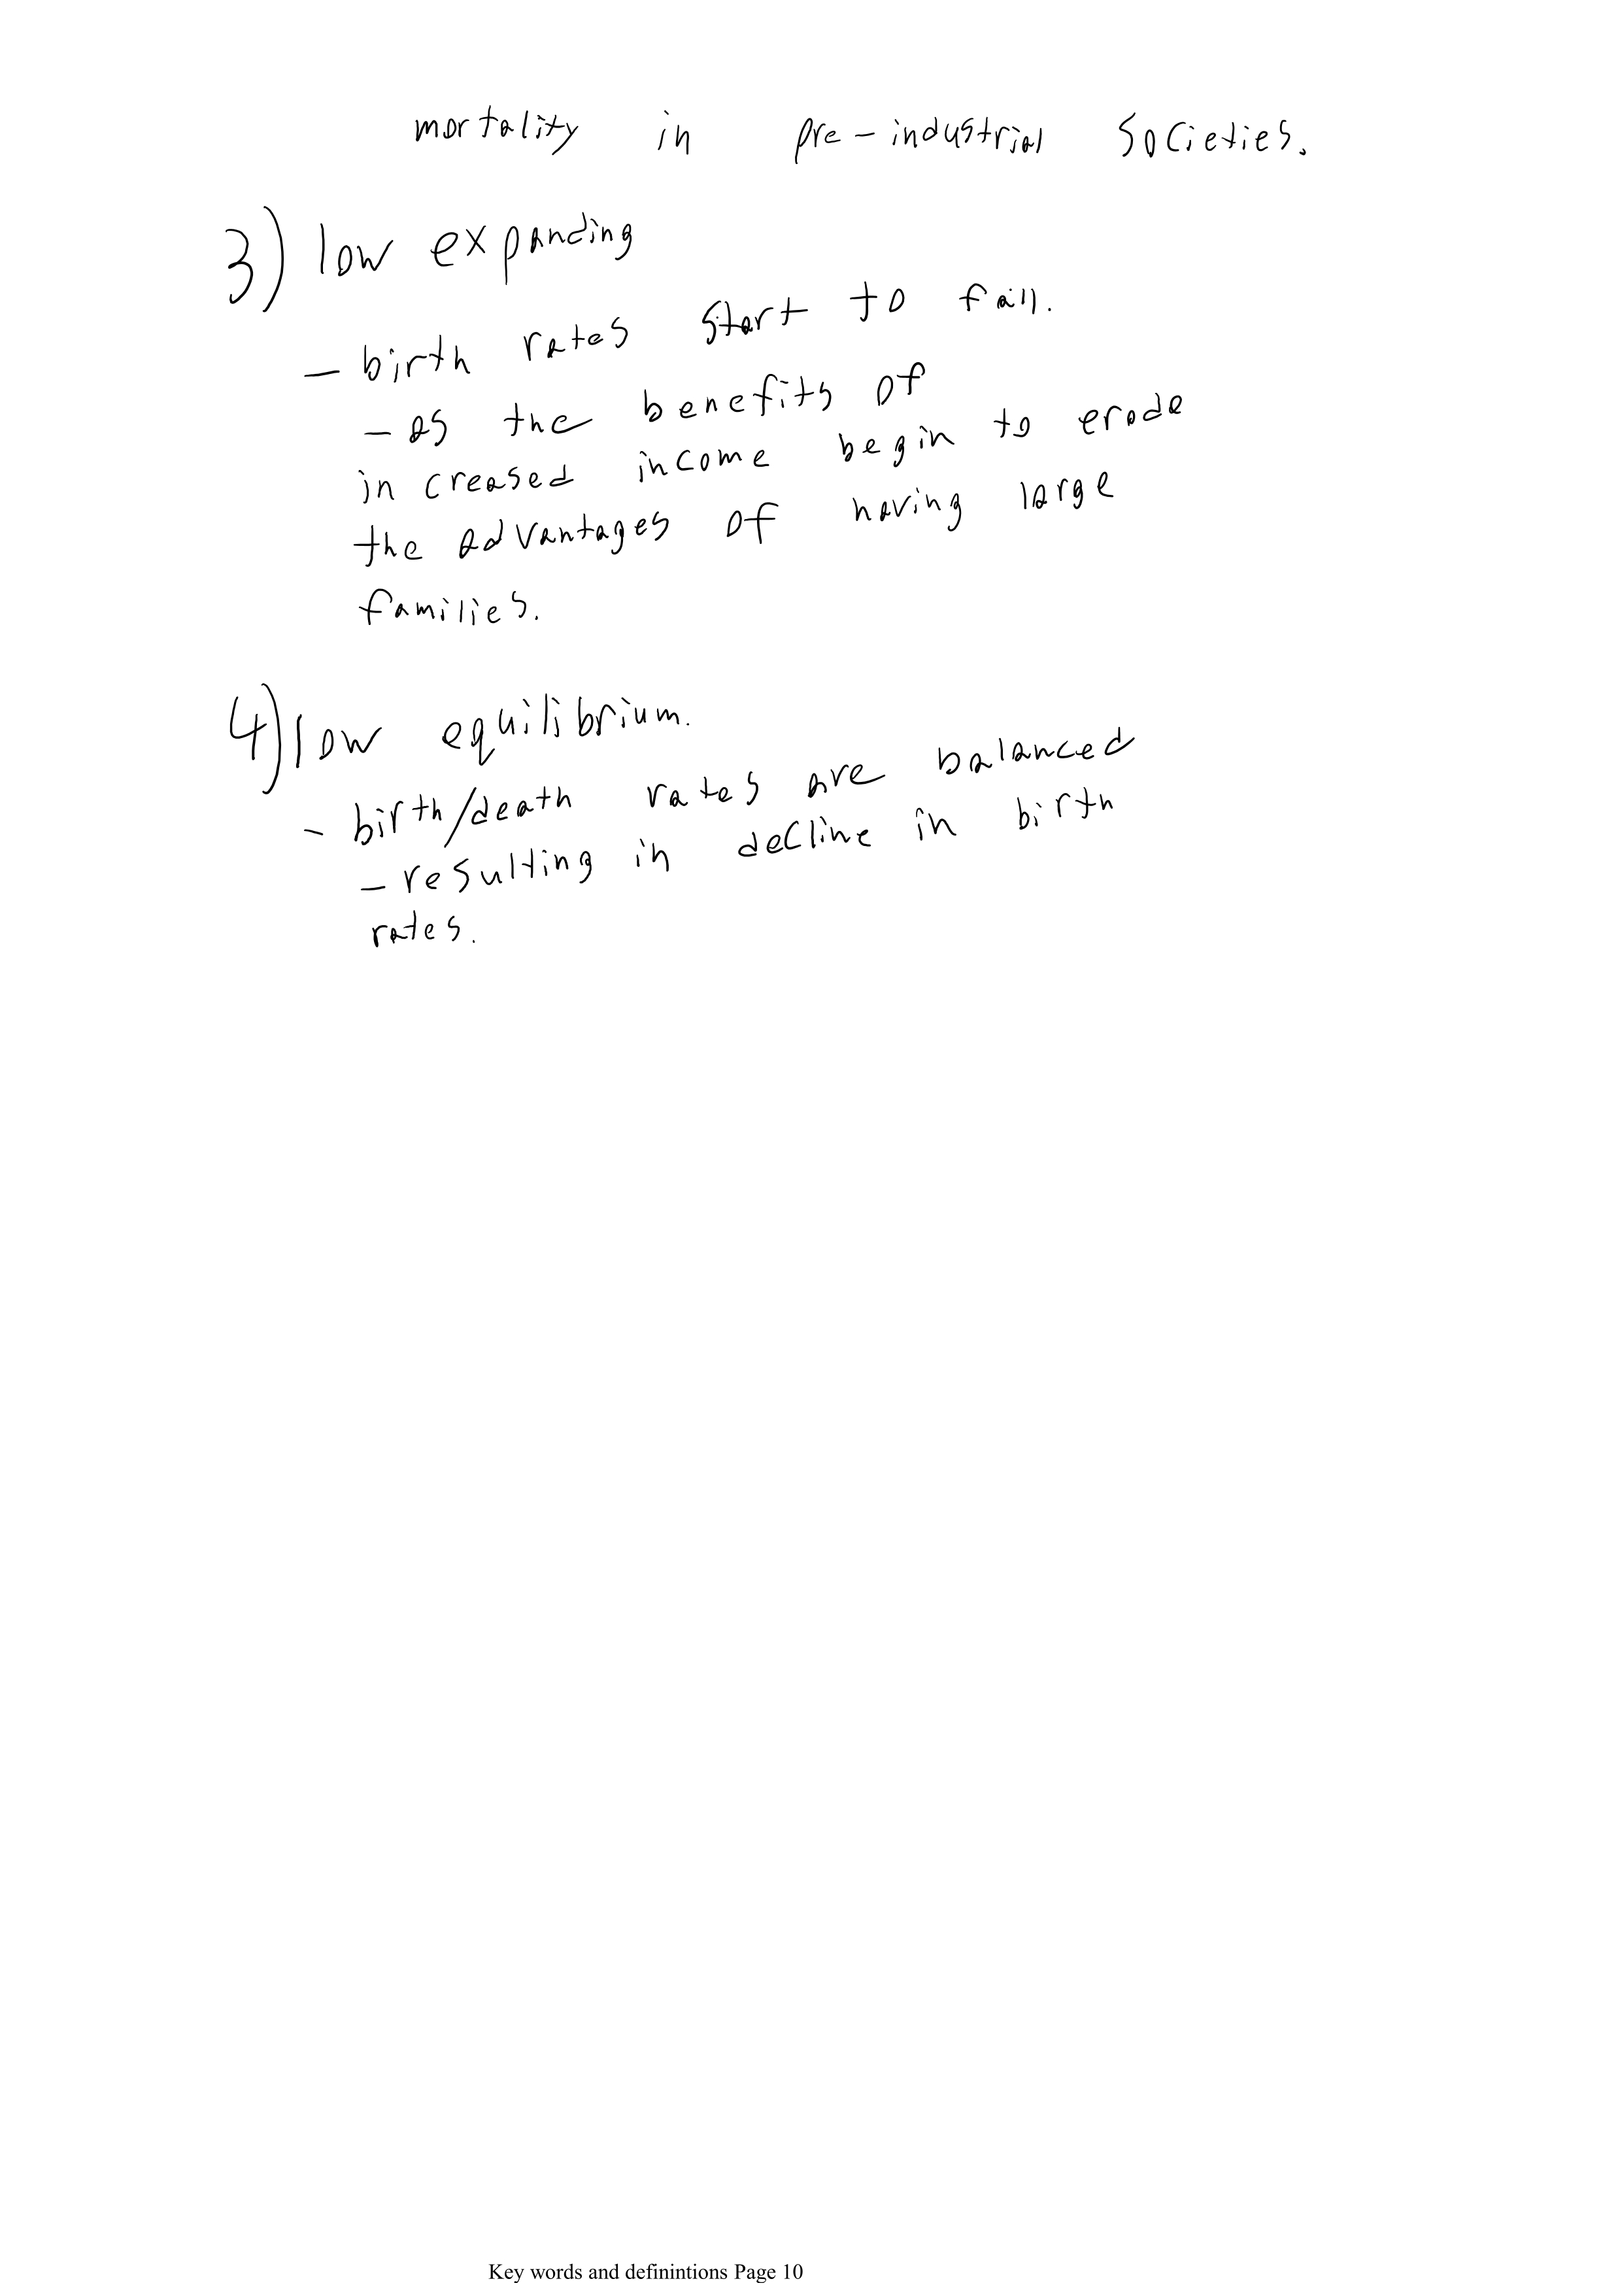 mortality in pre-industrial societies.
3) low expanding
- birth rates start to fall.
- as the benefits of
increased income begin to erode
the advantages of having large
families.
4) low equilibrium.
- birth/death rates are balanced
- resulting in decline in birth
rates.
Key words and definintions Page 10